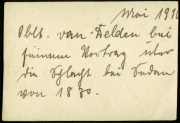 Mai 191
Oblt. van Zelden bei
seinem Vortrag über
die Schlacht bei Sedan
von 1870.